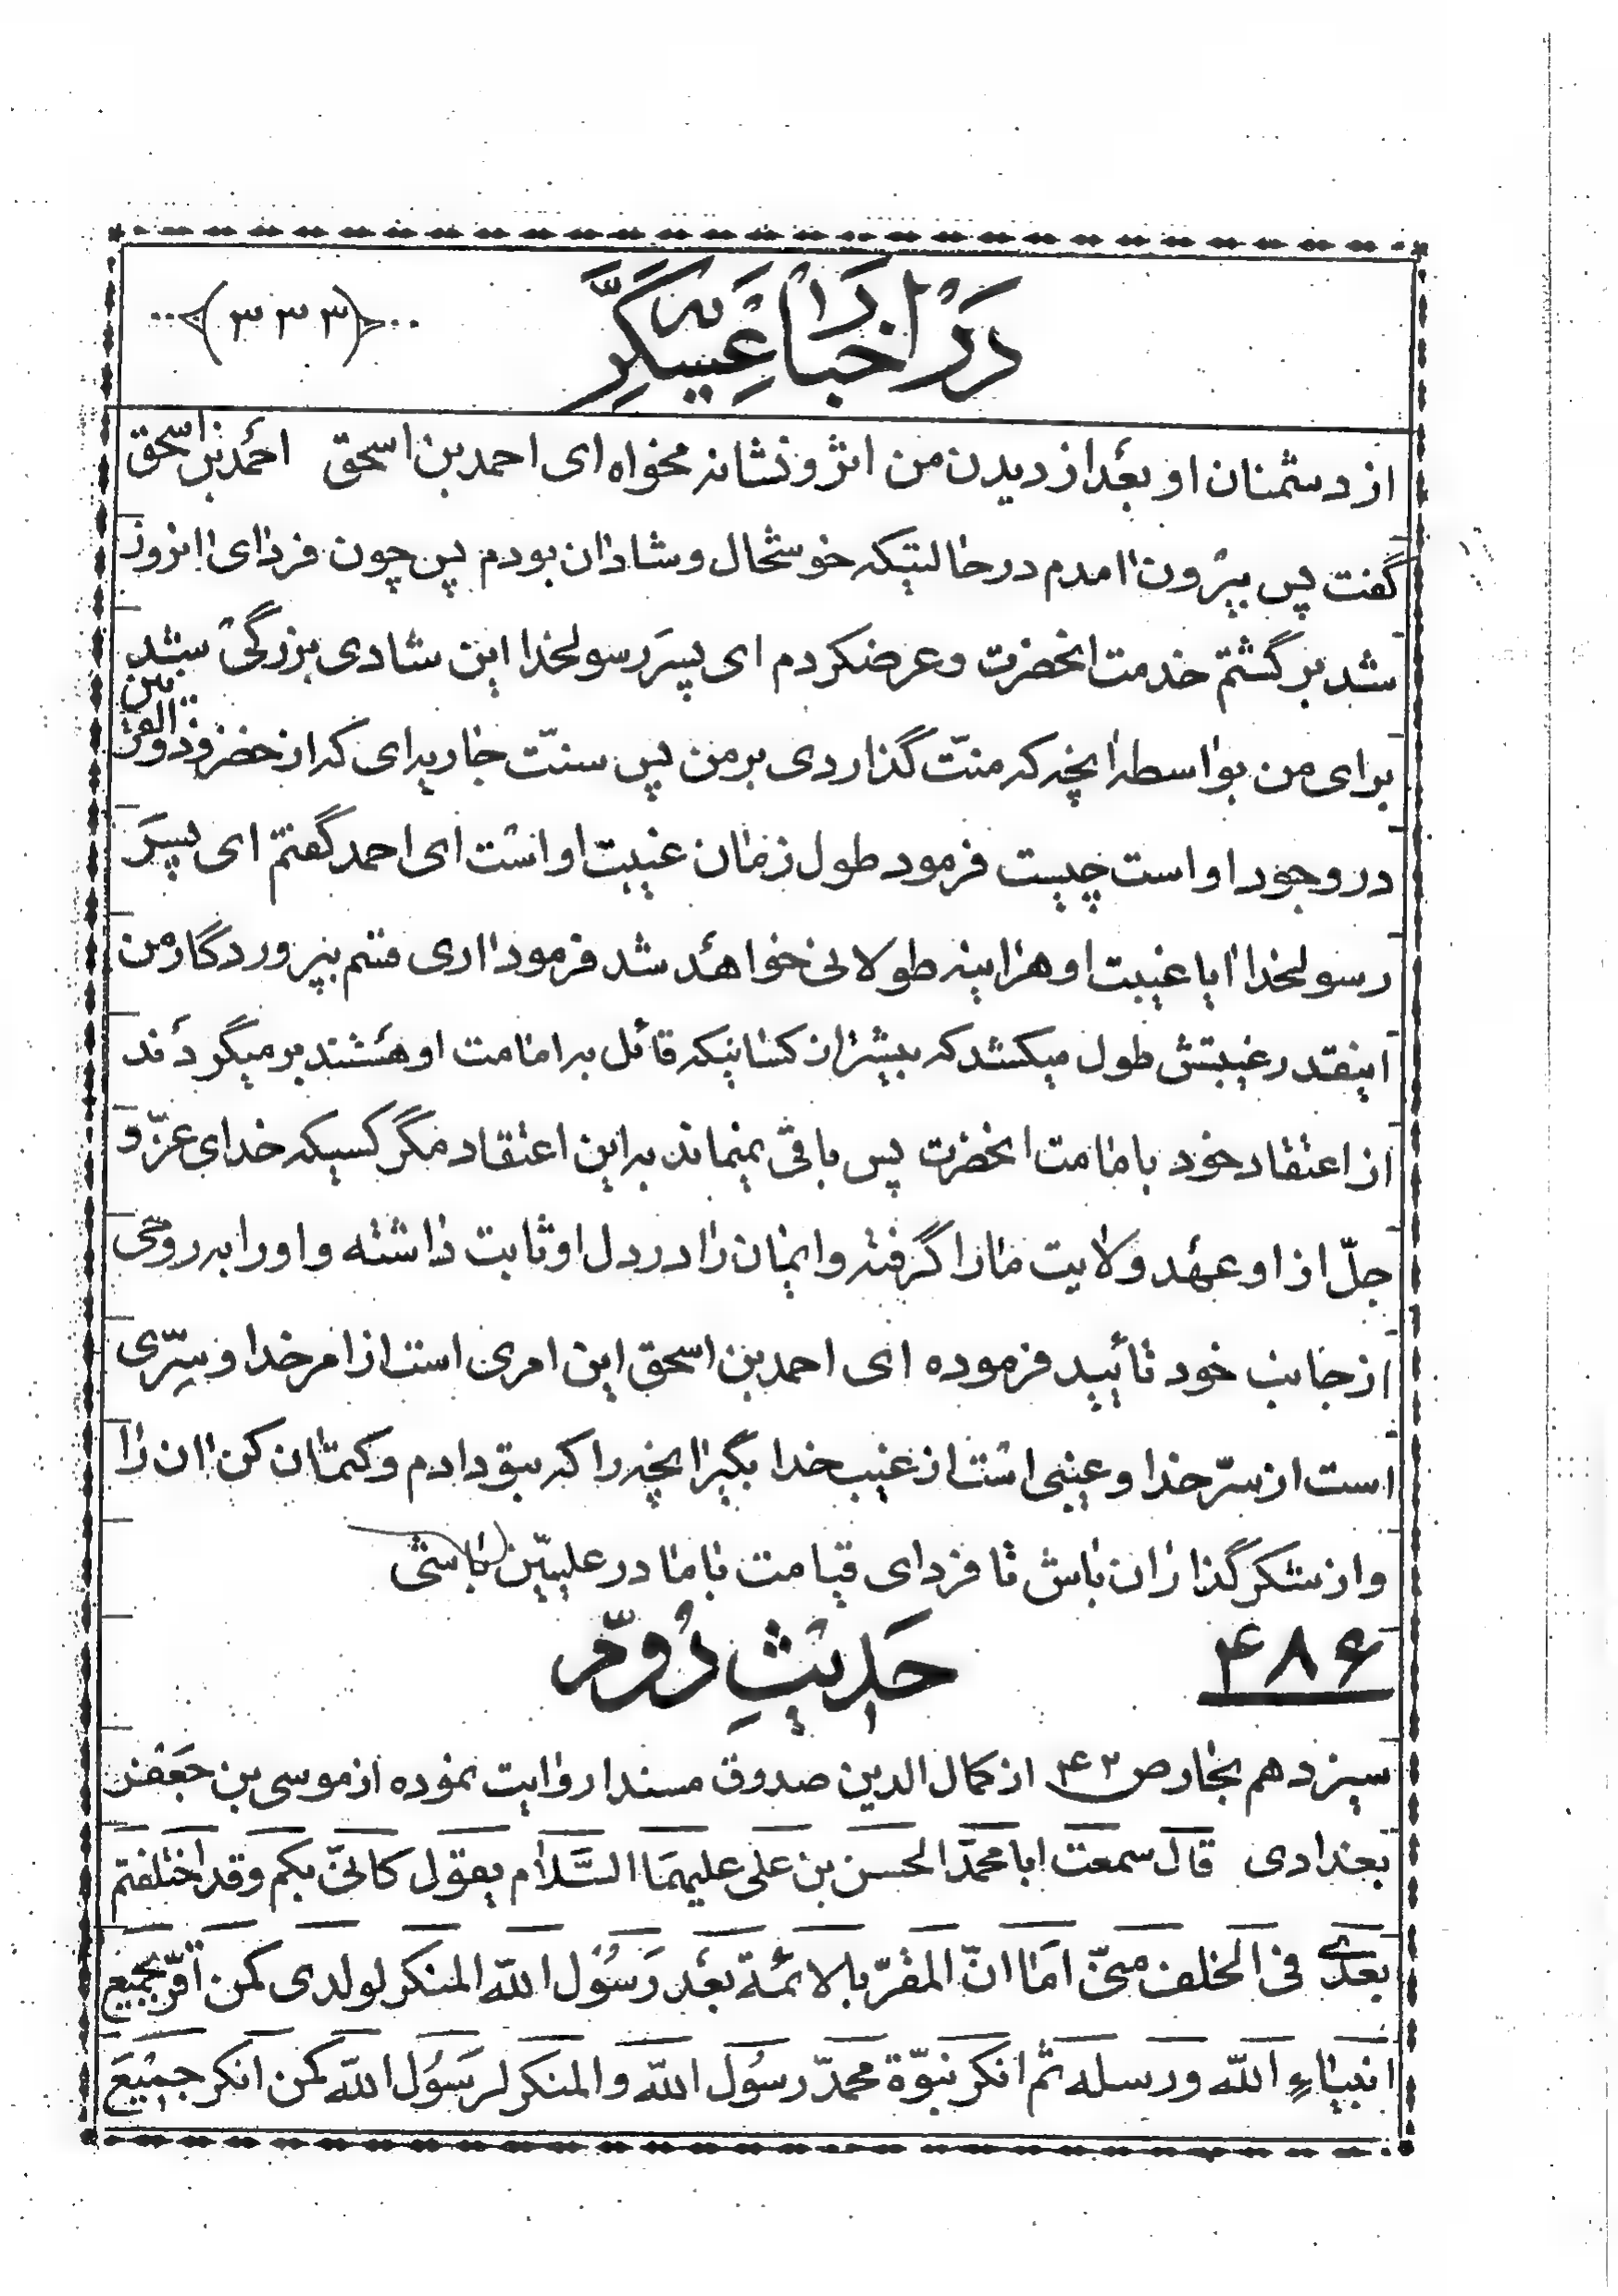 در اخبار عسکریه
(۳۳۳)
از دشمنان او بعد از دیدن من اثر و نشانه مخواه ای احمد بن اسحق احمد بن اسحق
گفت پس بیرون امدم در حالتیکه خوشحال و شادان بودم پس چون فردای انروز
شد برگشتم خدمت انحضرت و عرضکردم ای پسر رسولخدا این شادی بزرگی شد
برای من بواسطه انچه که منّت گذاردی بر من پس سنّت جاریه‌ای که از خضر و ذوالقرنین
در وجود او است چیست فرمود طول زمان غیبت او است ای احمد گفتم ای پسر
رسولخدا ایا غیبت او هراینه طولانی خواهد شد فرمود اری قسم بپروردگار من
اینقدر غیبتش طول میکشد که بیشتر از کسانیکه قائل به امامت او هستند برمیگردند
از اعتقاد خود بامامت انحضرت پس باقی نمیماند به این اعتقاد مگر کسیکه خدای عزّ و
جلّ از او عهد ولایت ما را گرفته و ایمان را در دل او ثابت داشته و او را به روحی
از جانب خود تأیید فرموده ای احمد بن اسحق این امری است از امر خدا و سِرّی
است از سرّ خدا و غیبی است از غیب خدا بگیر انچه را که بتو دادم و کتمان کن ان را
و از شکر گذاران باش تا فردای قیامت با ما در علیّین باشی
۴۸۶ حَدیثِ دُوّم
سیزدهم بحار ص ۴۲ از کمال الدین صدوق مسندا روایت نموده از موسی بن جعفر
بغدادی قال سمعت ابا محمّد الحسن بن علی علیهما السَّلام یقول کانّی بکم و قد اختلفتم
بعدی فی الخلف منّی اما انّ المقرّ بالائمّة بعد رَسُول اللّه المنکر لولدی کمن اقرّ بجمیع
انبیاءِ اللّه و رسله ثم انکر نبوّة محمّد رسُول اللّه و المنکر لرسُول اللّه کمن انکر جمیعَ